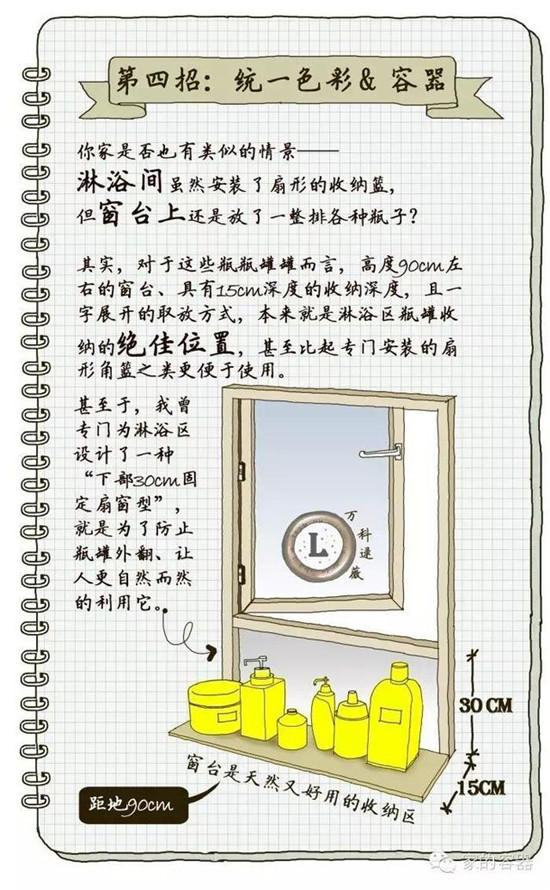 第四招：统一色彩& 容器
你家是否也有类似的情景——
淋浴间虽然安装了扇形的收纳篮，
但窗台上还是放了一整排各种瓶子？
其实，对于这些瓶瓶罐罐而言，高度90cm左
右的窗台、具有15cm深度的收纳深度，且一
字展开的取放方式，本来就是淋浴区瓶罐收
纳的绝佳位置，甚至比起专门安装的扇
形角篮之类更便于使用。
甚至于，我曾
专门为淋浴区
设计了一种
“下部30cm固
定扇窗型”，
就是为了防止
瓶罐外翻、让
人更自然而然
的利用它。
L
万科逯薇
30 CM
15CM
窗台是天然又好用的收纳区
距地90cm
家的容器